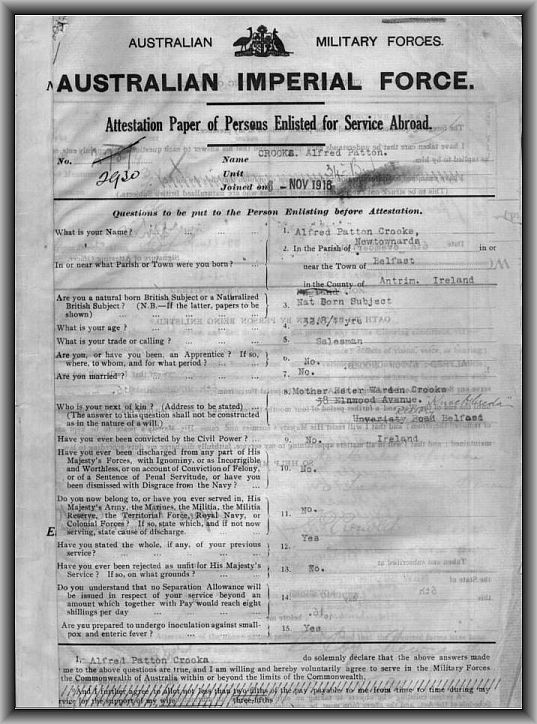 AUSTRALIAN MILITARY FORCES.
AUSTRALIAN IMPERIAL FORCE.
Attestation Paper of Persons Enlisted for Service Abroad.
No. 2930
Name CROOKS. Alfred Patton.
Unit
Joined on - NOV 1916
Questions to be put to the Person Enlisting before Attestation.
What is your Name? ... ... ... 1. Alfred Patton Crooks,
In or near what Parish or Town were you born? ... 2. In the Parish of Newtownards in or
near the Town of Belfast
in the County of Antrim. Ireland
Are you a natural born British Subject or a Naturalized
British Subject? (N.B.—If the latter, papers to be
shown) ... ... ... 3. Nat Born Subject
What is your age? ... ... ... 4.
What is your trade or calling? ... ... 5. Salesman
Are you, or have you been, an Apprentice? If so,
where, to whom, and for what period? ... 6. No.
Are you married? ... ... ... 7. No.
Who is your next of kin? (Address to be stated) ...
(The answer to this question shall not be construed
as in the nature of a will.)
8. Mother Ester Warden Crooks
38 Elmwood Avenue.
Unversity Road Belfast
Ireland
Have you ever been convicted by the Civil Power? ... 9. No.
Have you ever been discharged from any part of His
Majesty's Forces, with Ignominy, or as Incorrigible
and Worthless, or on account of Conviction of Felony,
or of a Sentence of Penal Servitude, or have you
been dismissed with Disgrace from the Navy? ... 10. No.
Do you now belong to, or have you ever served in, His
Majesty's Army, the Marines, the Militia, the Militia
Reserve, the Territorial Force, Royal Navy, or
Colonial Forces? If so, state which, and if not now
serving, state cause of discharge. 11. No.
Have you stated the whole, if any, of your previous
service? ... ... ... 12. Yes
Have you ever been rejected as unfit for His Majesty's
Service? If so, on what grounds? ... 13. No.
Do you understand that no Separation Allowance will
be issued in respect of your service beyond an
amount which together with Pay would reach eight
shillings per day ... ... ... 14.
Are you prepared to undergo inoculation against small-
pox and enteric fever? ... ... 15. Yes
I, Alfred Patton Crooks do solemnly declare that the above answers made
me to the above questions are true, and I am willing and hereby voluntarily agree to serve in the Military Forces
the Commonwealth of Australia within or beyond the limits of the Commonwealth.
And I further agree to allot not less than two-fifths of the pay payable to me from time to time during my
service for the support of my wife three-fifths